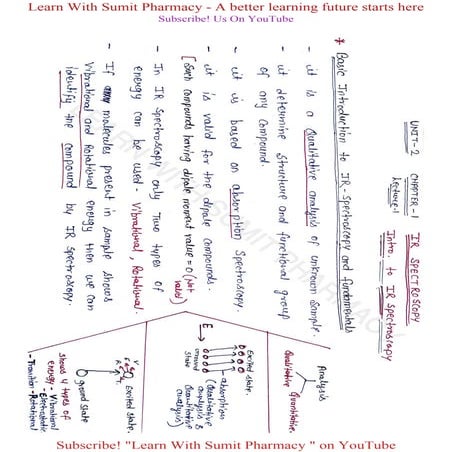 Learn With Sumit Pharmacy - A better learning future starts here
Subscribe! Us On YouTube
UNIT-2 CHAPTER-1 IR SPECTROSCOPY
Lecture-1 Intro. to IR Spectroscopy
* Basic Introduction to IR-Spectroscopy and fundamentals
- it is a Qualitative analysis of unknown sample.
- it determine structure and functional group
of any compound.
- it is based on absorption Spectroscopy
- it is valid for the dipole compounds.
[Such compounds having dipole moment value = 0 (not valid)
- In IR Spectroscopy only Two types of
energy can be used - Vibrational, Rotational.
- If any molecules present in sample shows
Vibrational and Rotational energy then we can
identify the compound by IR Spectroscopy.
Analysis
Qualitative Quantitative.
Excited state.
E
absorption
(Qualitative
analysis &
Quantitative
analysis)
Ground
state
Excited state.
ground state
shows 4 types of
energy - Vibrational
- Electronic
- Transition - Rotational
LEARN WITH SUMIT PHARMACY
Subscribe! "Learn With Sumit Pharmacy " on YouTube